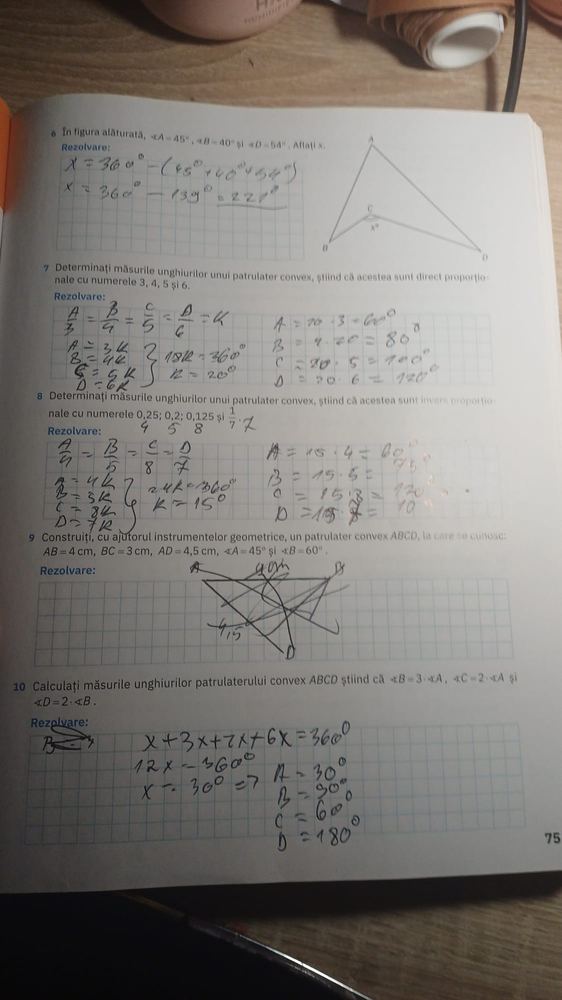 6 În figura alăturată, ∢A = 45°, ∢B = 40° și ∢D = 54°. Aflați x.
Rezolvare:
x = 360° − (45° + 40° + 54°)
x = 360° − 139° = 221°
A
C
x°
B
D
7 Determinați măsurile unghiurilor unui patrulater convex, știind că acestea sunt direct proporțio-
nale cu numerele 3, 4, 5 și 6.
Rezolvare:
A/3 = B/4 = C/5 = D/6 = K
A = 3K
B = 4K
C = 5K
D = 6K
18K = 360°
K = 20°
A = 20 · 3 = 60°
B = 4 · 20 = 80°
C = 20 · 5 = 100°
D = 20 · 6 = 120°
8 Determinați măsurile unghiurilor unui patrulater convex, știind că acestea sunt invers proporțio-
nale cu numerele 0,25; 0,2; 0,125 și 1/7. 7
4 5 8
Rezolvare:
A/4 = B/5 = C/8 = D/7
A = 4K
C = 8K
D = 7K
24K = 360°
K = 15°
A = 15 · 4 = 60°
B = 15 · 5 = 75°
C = 15 · 8 = 120
9 Construiți, cu ajutorul instrumentelor geometrice, un patrulater convex ABCD, la care se cunosc:
AB = 4 cm, BC = 3 cm, AD = 4,5 cm, ∢A = 45° și ∢B = 60°.
Rezolvare:
A
B
4,5
D
10 Calculați măsurile unghiurilor patrulaterului convex ABCD știind că ∢B = 3·∢A, ∢C = 2·∢A și
∢D = 2·∢B.
Rezolvare:
x + 3x + 2x + 6x = 360°
12x = 360°
x = 30° =>
A = 30°
B = 90°
C = 60°
D = 180°
75